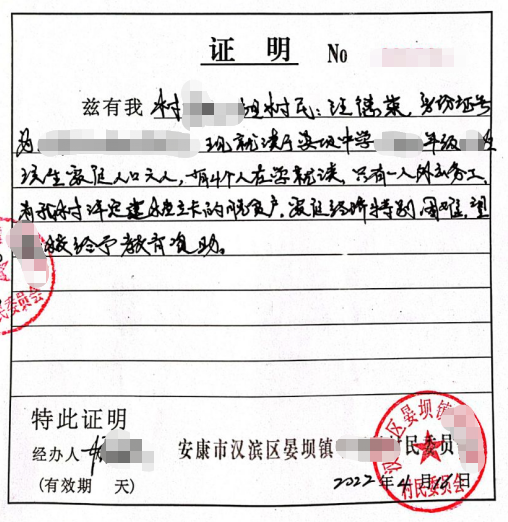 证 明 No
兹有我 村 组村民：汪德荣，身份证号
为 现就读于晏坝中学 年级 班
该生家庭人口六人，有4个人在学就读，只有一人外出务工，
为我村评定建档立卡的脱贫户，家庭经济特别困难，望
贵校给予教育资助。
特此证明
经办人
安康市汉滨区晏坝镇 村民委员
(有效期 天)
2022年4月18日
汉 区晏坝镇
村民委员会
民委员会